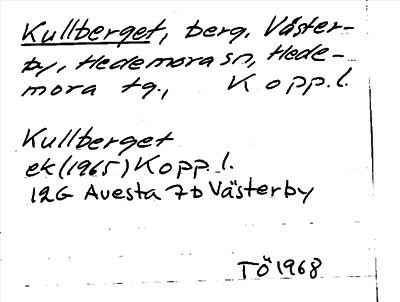 Kullberget, berg, Väster-
by, Hedemora sn, Hede-
mora tg., Kopp.l.
Kullberget
ek (1965) Kopp.l.
12G Avesta 7b Västerby
TÖ 1968